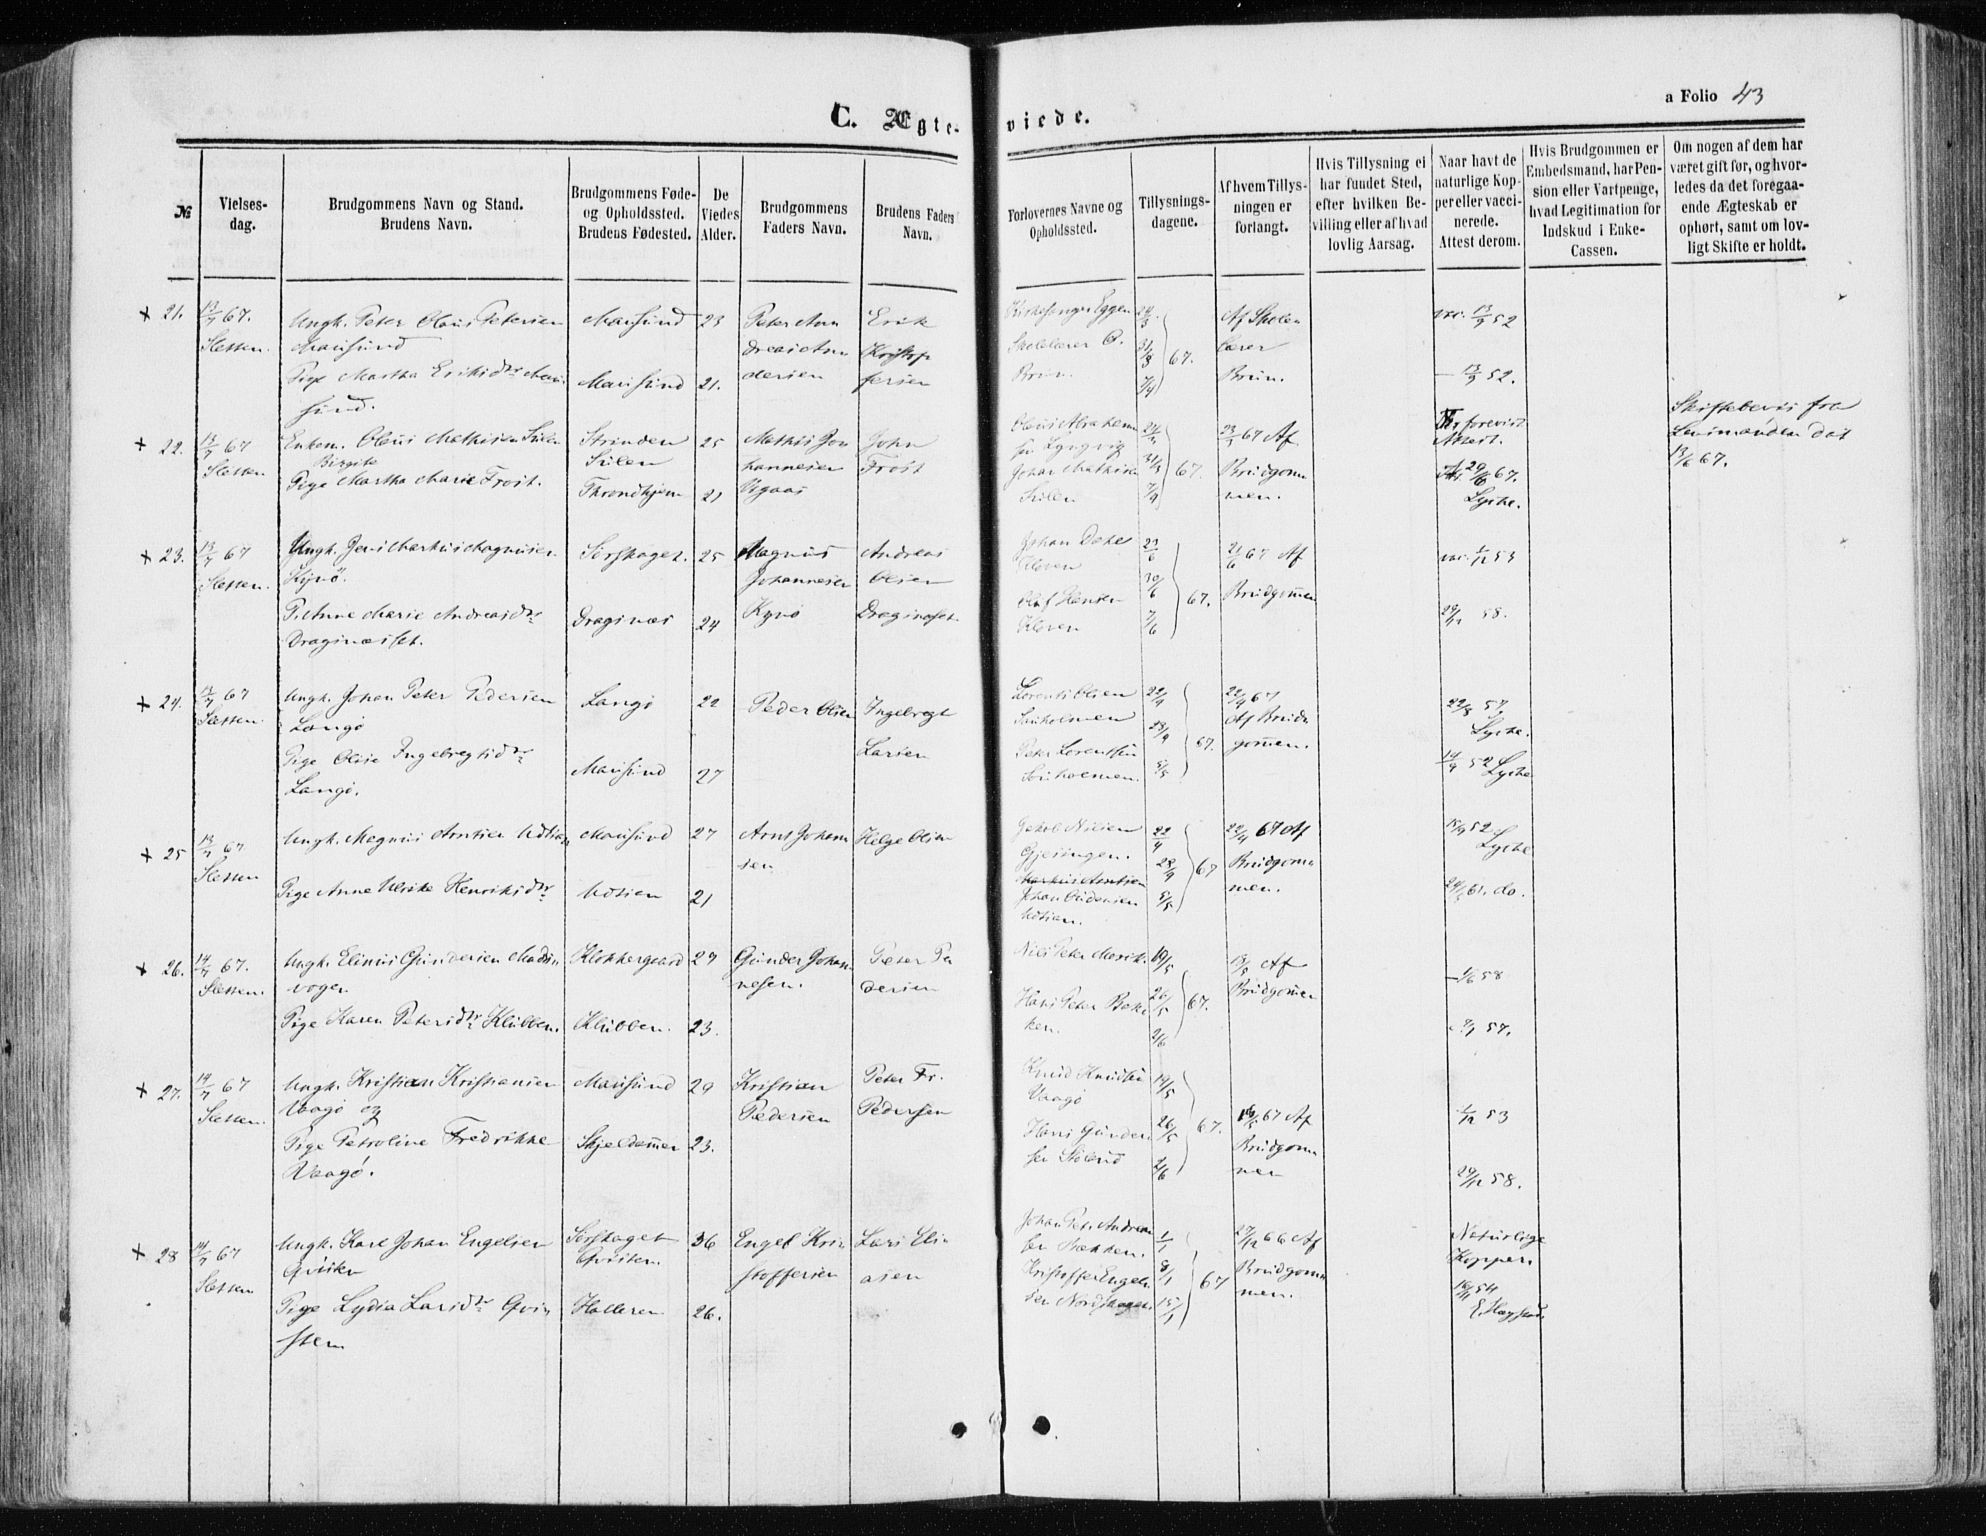 a Folio 43
C. Ægte- viede.
№
Vielses-
dag.
Brudgommens Navn og Stand.
Brudens Navn.
Brudgommens Føde-
og Opholdssted.
Brudens Fødested.
De
Viedes
Alder.
Brudgommens
Faders Navn.
Brudens Faders
Navn.
Forlovernes Navne og
Opholdssted.
Tillysnings-
dagene.
Af hvem Tillys-
ningen er
forlangt.
Hvis Tillysning ei
har fundet Sted,
efter hvilken Be-
villing eller af hvad
lovlig Aarsag.
Naar havt de
naturlige Kop-
per eller vacci-
nerede.
Attest derom.
Hvis Brudgommen er
Embedsmand, har Pen-
sion eller Vartpenge,
hvad Legitimation for
Indskud i Enke-
Cassen.
Om nogen af dem har
været gift før, og hvor-
ledes da det foregaa-
ende Ægteskab er
ophørt, samt om lov-
ligt Skifte er holdt.
+ 21.
13/7 67.
Sletten.
Ungk. Peter Olaus Petersen
Mausund
Pige Martha Eriksdtr Mau-
sund.
Mausund
Mausund
23
21.
Peter An-
dreas An-
dersen
Erik
Kristof-
fersen
Kirkesanger Eggen
Skolelærer O.
Brun.
24/3
31/3
7/4
67.
Af Skole-
lærer
Brun.
vac. 13/9 52
— 13/9 52.
+ 22.
13/7 67
Sletten
Enkem. Olaus Mathisen Sulen
Birgite
Pige Martha Marie Frost.
Strinden
Sulen
Throndhjem
25
21
Mathis Jo-
hannesen
Ugaas
John
Frost
Olaus Abraham-
sen
Johan Mathisen
Sulen
24/3
31/3
7/4
67.
23/3 67 Af
Brudgom-
men.
forevist
Attest.
29/6 67.
Lysthe.
Skiftebevis fra
Lensmanden dat
13/6 67.
+ 23.
13/7 67
Sletten.
Ungk. Jens Markus Magnusen
Kyrø.
P. Anne Marie Andreasdtr
Draginæsset.
Sørskaget.
Draginæs
25
24
Magnus
Johannesen
Kyrø
Andreas
Olsen
Draginæset.
Johan
Kleven
Olaf Hansen
Kleven
23/6
30/6
7/6
67.
21/6 67 Af
Brudgommen
vac. 1/12 53
29/12 58.
+ 24.
13/7 67
Sletten.
Ungk. Johan Peter Pedersen
Langø
Pige Olise Ingebregtsdtr
Langø.
Langø
Mausund
22
27
Peder Olsen
Ingebregt
Larsen
Lorents Olsen
Sauholmen
Peter Lorentsen
Sauholmen.
22/4
28/4
5/5
67.
22/4 67
Af Brud-
gommen.
22/8 57,
Lysthe.
14/9 52 Lysthe
+ 25
13/7 67
Sletten
Ungk. Magnus Arntsen Udtian
Pige Anne Ulrike Henriksdtr
Mausund
Udtian
27
21
Arnt Johan-
sen
Helge Olsen
Jakob Nilsen
Gjesingen.
Markus Arntsen
Johan Gudersen
Udtian.
22/4
28/4
5/5
67
22/4 67 Af
Brudgom-
men.
15/9 52
Lysthe
24/8 61. do.
+ 26.
14/7 67.
Sletten.
Ungk. Elinus Gundersen Madsn-
vogen
Pige Karen Petersdtr Klubben.
Klokkergaard
Klubben.
27
23.
Gunder Johan-
nesen.
Peter Pe-
dersen
Nils Peter
Hans Peter Bak-
ken.
19/5
26/5
2/6
67.
13/5 Af
Brudgommen
— 1/6 58
9/7 57.
+ 27.
14/7 67
Sletten.
Ungk. Kristian Kristiansen
Vaagø og
Pige Petroline Fredrikke
Vaagø.
Mausund
Skjeldammen
29
23.
Kristian
Pedersen
Peter Fr.
Pedersen
Knud Knudsen
Vaagø
Hans Gunder-
sen
19/5
26/5
2/6
67.
16/5 67 Af
Brudgom-
men
1/12 53
29/12 58.
+ 28
14/7 67
Sletten
Ungk. Karl Johan Engelsen
Qvisten
Pige Lydia Larsdtr Qvi-
sten
Sørskaget
Qvisten.
Halteren
36
26.
Engel Kri-
stoffersen
Lars Eli-
asen
Johan Petr. Andrea-
sen Bakken.
Kristoffer Engel-
sen Nordskagen.
1/1
8/1
15/1
67
27/12 66 Af
Brudgom-
men.
Naturlige
Kopper.
16/11 54